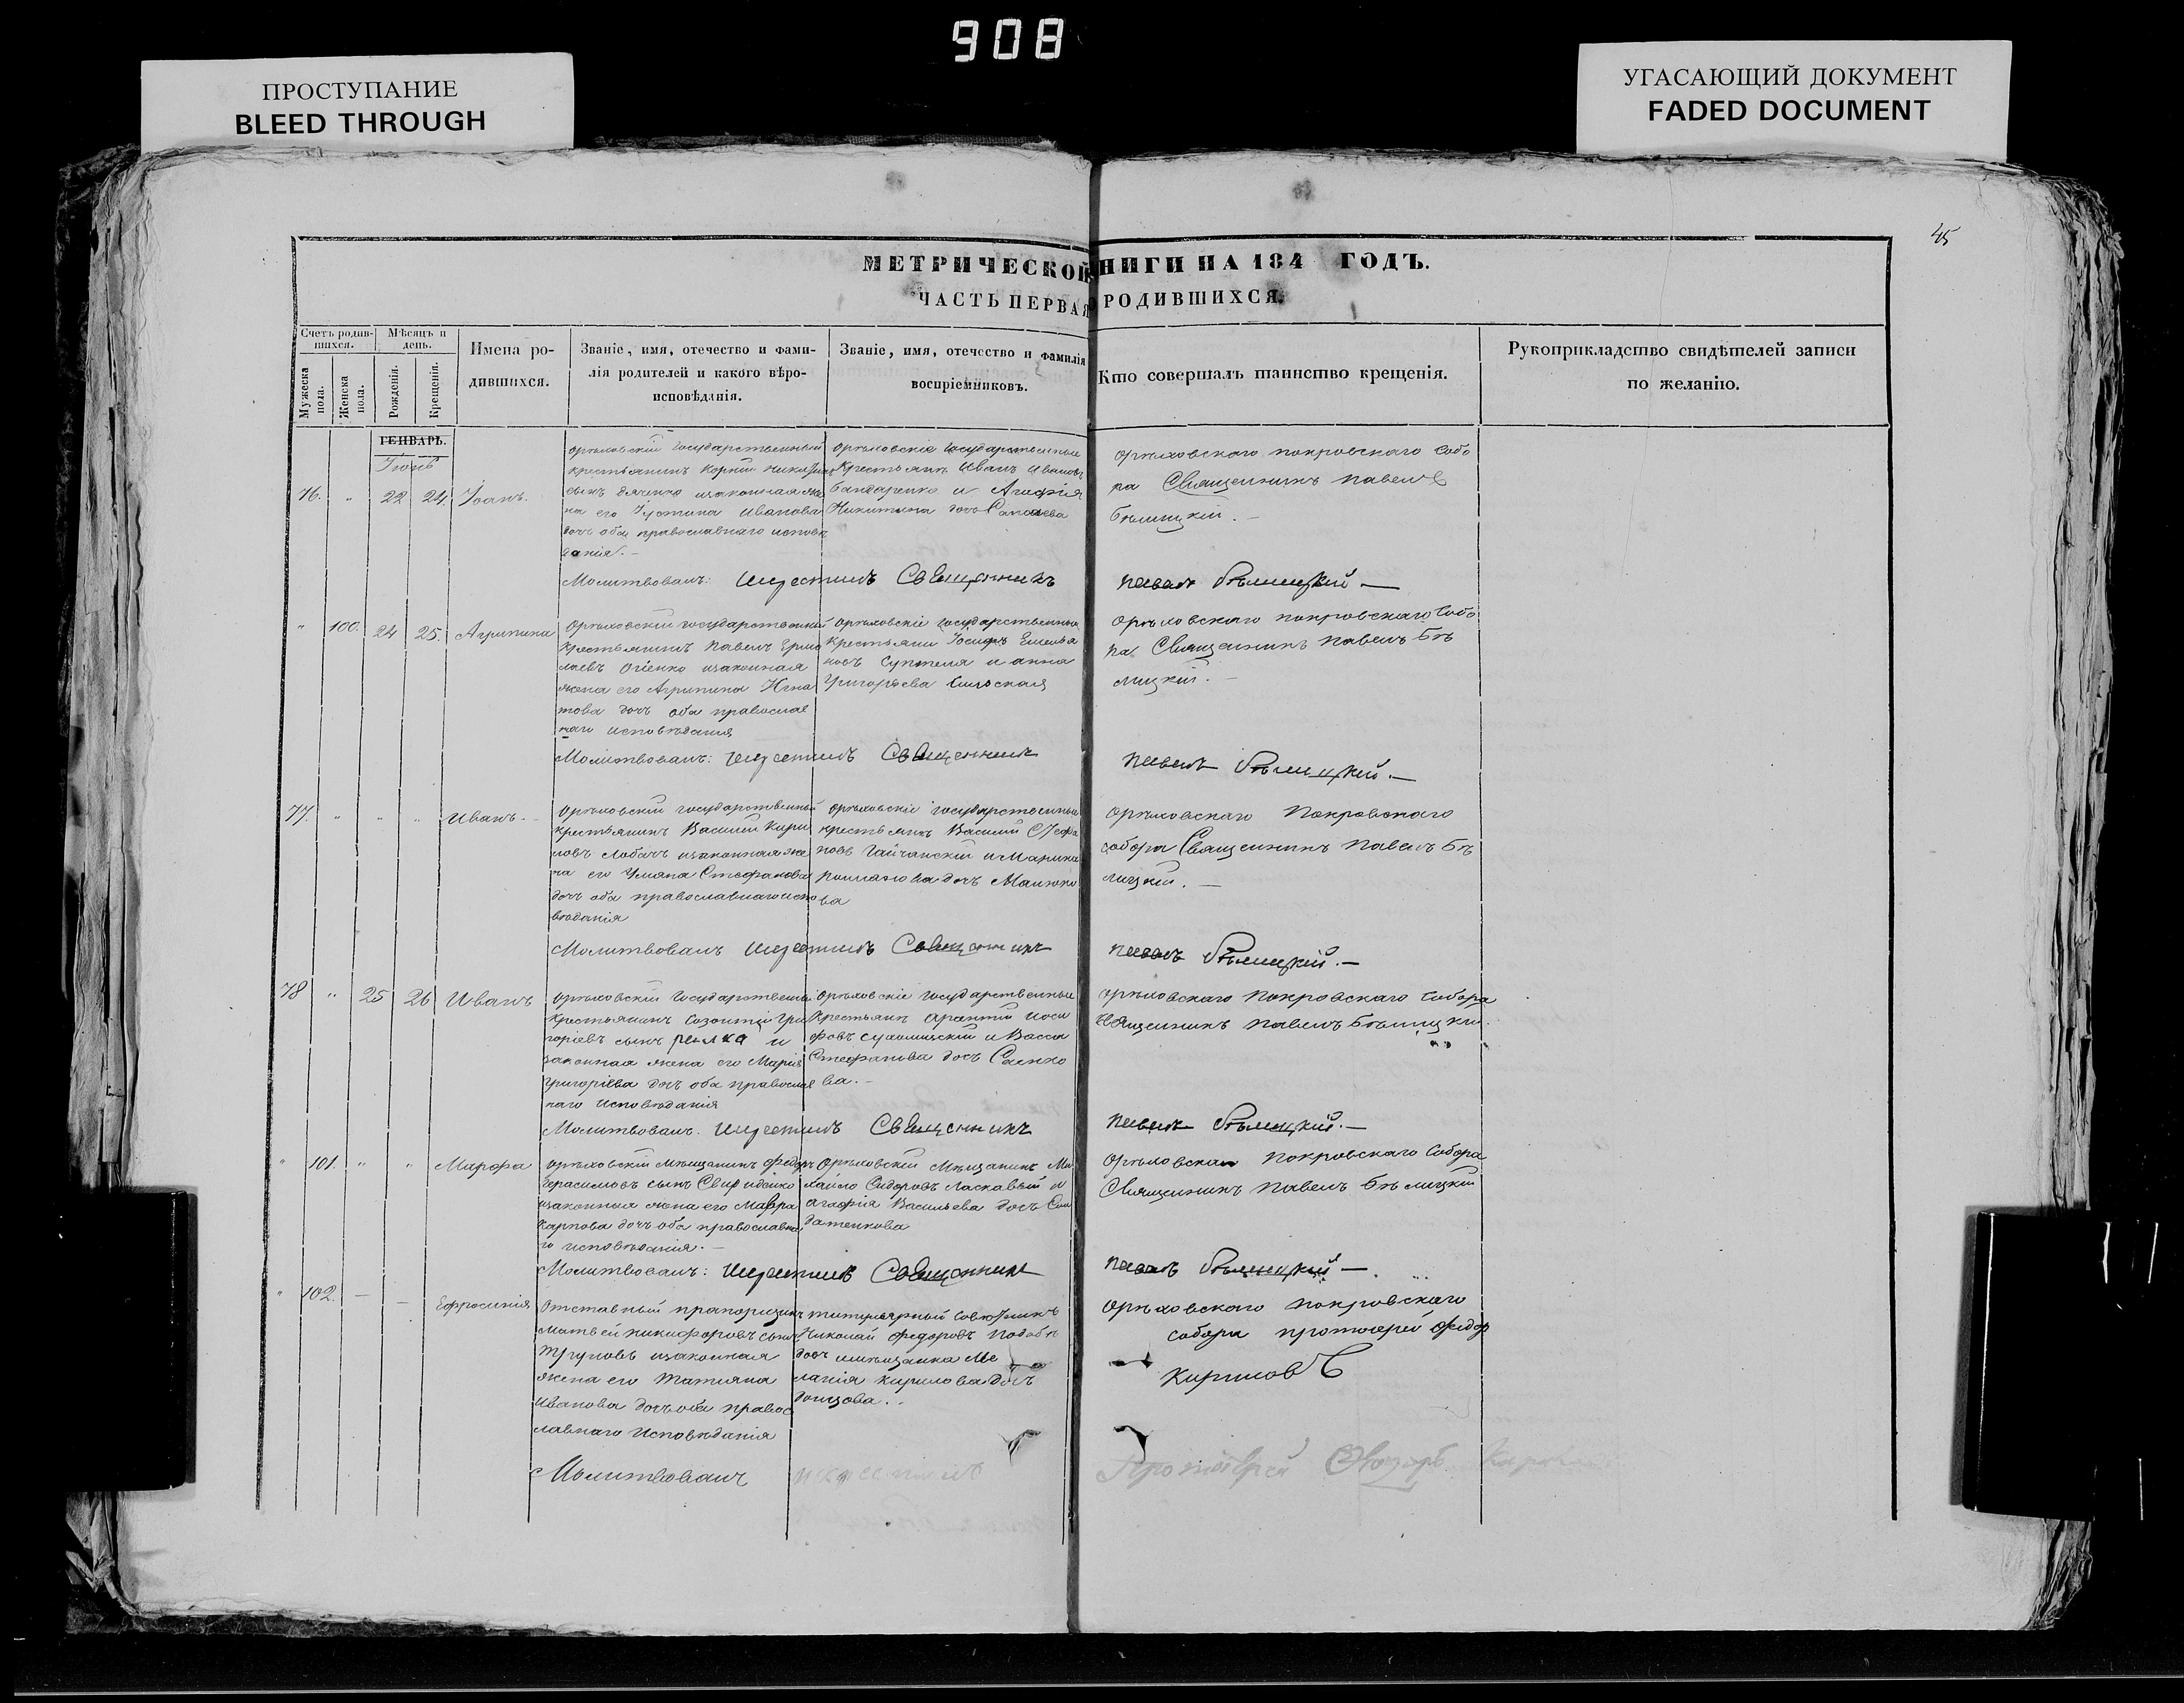 908
ПРОСТУПАНИЕ
BLEED THROUGH
УГАСАЮЩИЙ ДОКУМЕНТ
FADED DOCUMENT
45
МЕТРИЧЕСКОЙ КНИГИ НА 184 ГОДЪ.
ЧАСТЬ ПЕРВАЯ О РОДИВШИХСЯ.
Счетъ родив-
шихся.
Мѣсяцъ и
день.
Мужеска
пола.
Женска
пола.
Рожденія.
Крещенія.
Имена ро-
дившихся.
Званіе, имя, отечество и фами-
лія родителей и какого вѣро-
исповѣданія.
Званіе, имя, отечество и фамилія
воспріемниковъ.
Кто совершалъ таинство крещенія.
Рукоприкладство свидѣтелей записи
по желанію.
ГЕНВАРЬ.
Іюнь
76. " 22 24. Іоанъ.
орѣховскій государственный
крестьянинъ Корній
сынъ дяченко изаконная же
на его Іустина Иванова
дочь оба православнаго исповѣ
данія.-
орѣховскіе государственные
крестьяне Иванъ Ивановъ
бандаренко и Агафія
Никитина дочь
орѣховскаго покровскаго собо
ра Священникъ павелъ
бѣлицкій.-
Молитвовалъ: икрестилъ Священникъ павелъ бѣлицкій —
" 100. 24 25. Агрипина
Орѣховскій государственный
крестьянинъ павелъ Ермо
лаевъ Огіенко изаконная
жена его Агрипина Игна
това дочь оба православ
наго исповѣданія
орѣховскіе государственные
крестьяни Іосифъ Емелья
новъ Суптеля и анна
григорьева
орѣховскаго покровскаго Собо
ра Священникъ павелъ Бѣ
лицкій.-
Молитвовалъ: икрестилъ Священникъ павелъ бѣлицкій.—
77. " " " Иванъ-
Орѣховскій государственный
крестьянинъ Василій Кири
ловъ Лобачъ изаконная же
на его Уляна Стефанова
дочь оба православнаго испо
вѣданія
орѣховскіе государственные
крестьяне Василій Стефа
новъ Гайчанскій и Марина
романова дочь Манжко
ва
орѣховскаго Покровскаго
собора Священникъ павелъ Бѣ
лицкій.-
Молитвовалъ икрестилъ Священникъ павелъ бѣлицкій.—
78 " 25 26 Иванъ
орѣховскій государственный
крестьянинъ Созонтій Гри
горіевъ сынъ релка и
законная жена его Марія
григоріева дочь оба православ
наго исповѣданія
орѣховскіе государственные
крестьяне Арсентій Иоси
фовъ и Васса
Стефанова дочь Саенко
ва.-
орѣховскаго покровскаго собора
священникъ павелъ бѣлицкій.
Молитвовалъ. икрестилъ Священникъ павелъ бѣлицкій.—
" 101. " " Марфа
орѣховскій мѣщанинъ федоръ
Герасимовъ сынъ Свириденко
изаконная жена его Мавра
Карпова дочь оба православна
го исповѣданія.-
Орѣховскій мѣщанинъ Ми
хайло Сидоровъ Ласкавый и
агафія Васильева дочь Сол
датенкова
орѣховскаго покровскаго Собора
Священникъ павелъ бѣлицкій
Молитвовалъ: икрестилъ Священникъ павелъ бѣлицкій —
" 102. — — Ефросинія
Отставный прапорщикъ
Матвей никифоровъ сынъ
Труновъ изаконная
жена его татияна
Иванова дочь оба правос
лавнаго исповѣданія
титулярный совѣтникъ
Николай федоровъ
имѣщанка Ме
ланія кирилова дочь
донцова.
орѣховскаго покровскаго
собора протоерей федор
Кириловъ
Молитвовалъ икрестилъ Протоіерей